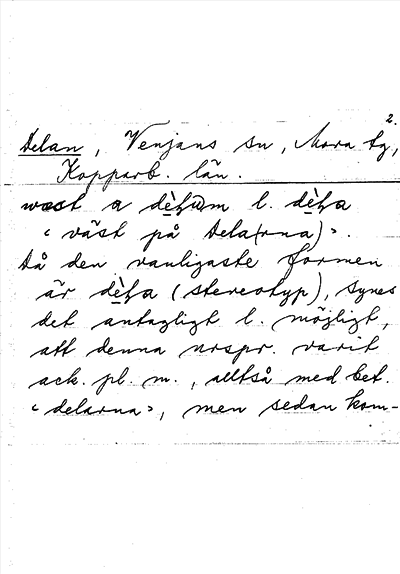 2.
Delan, Venjans sn, Mora tg,
Kopparb. län.
wæst a dèłum l. dèła
"väst på Dela(rna)".
Då den vanligaste formen
är dèła (stereotyp), synes
det antagligt l. möjligt,
att denna urspr. varit
ack. pl. m., alltså med bet.
"delarna", men sedan kom-